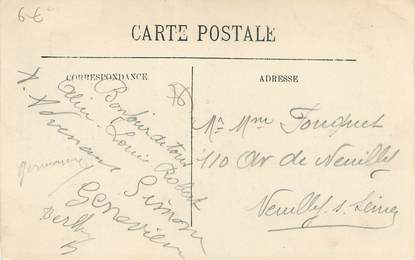 6-6
CARTE POSTALE
CORRESPONDANCE
ADRESSE
Bonjour de tous
Alice Louis Robert
Simone
Geneviève
Germaine
Berthe
Mr Mme Fouquet
110 Av de Neuilly
Neuilly s. Seine